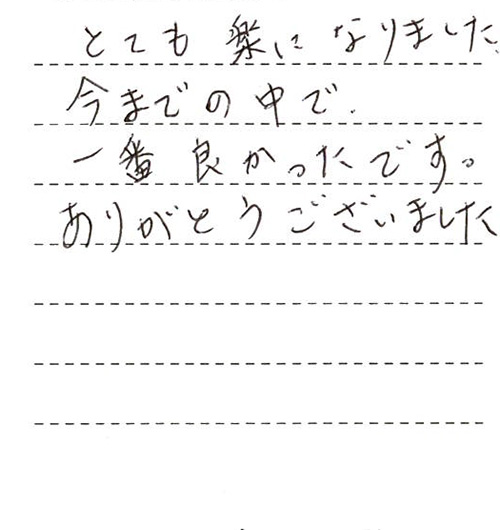 とても楽になりました
今までの中で、
一番良かったです。
ありがとうございました